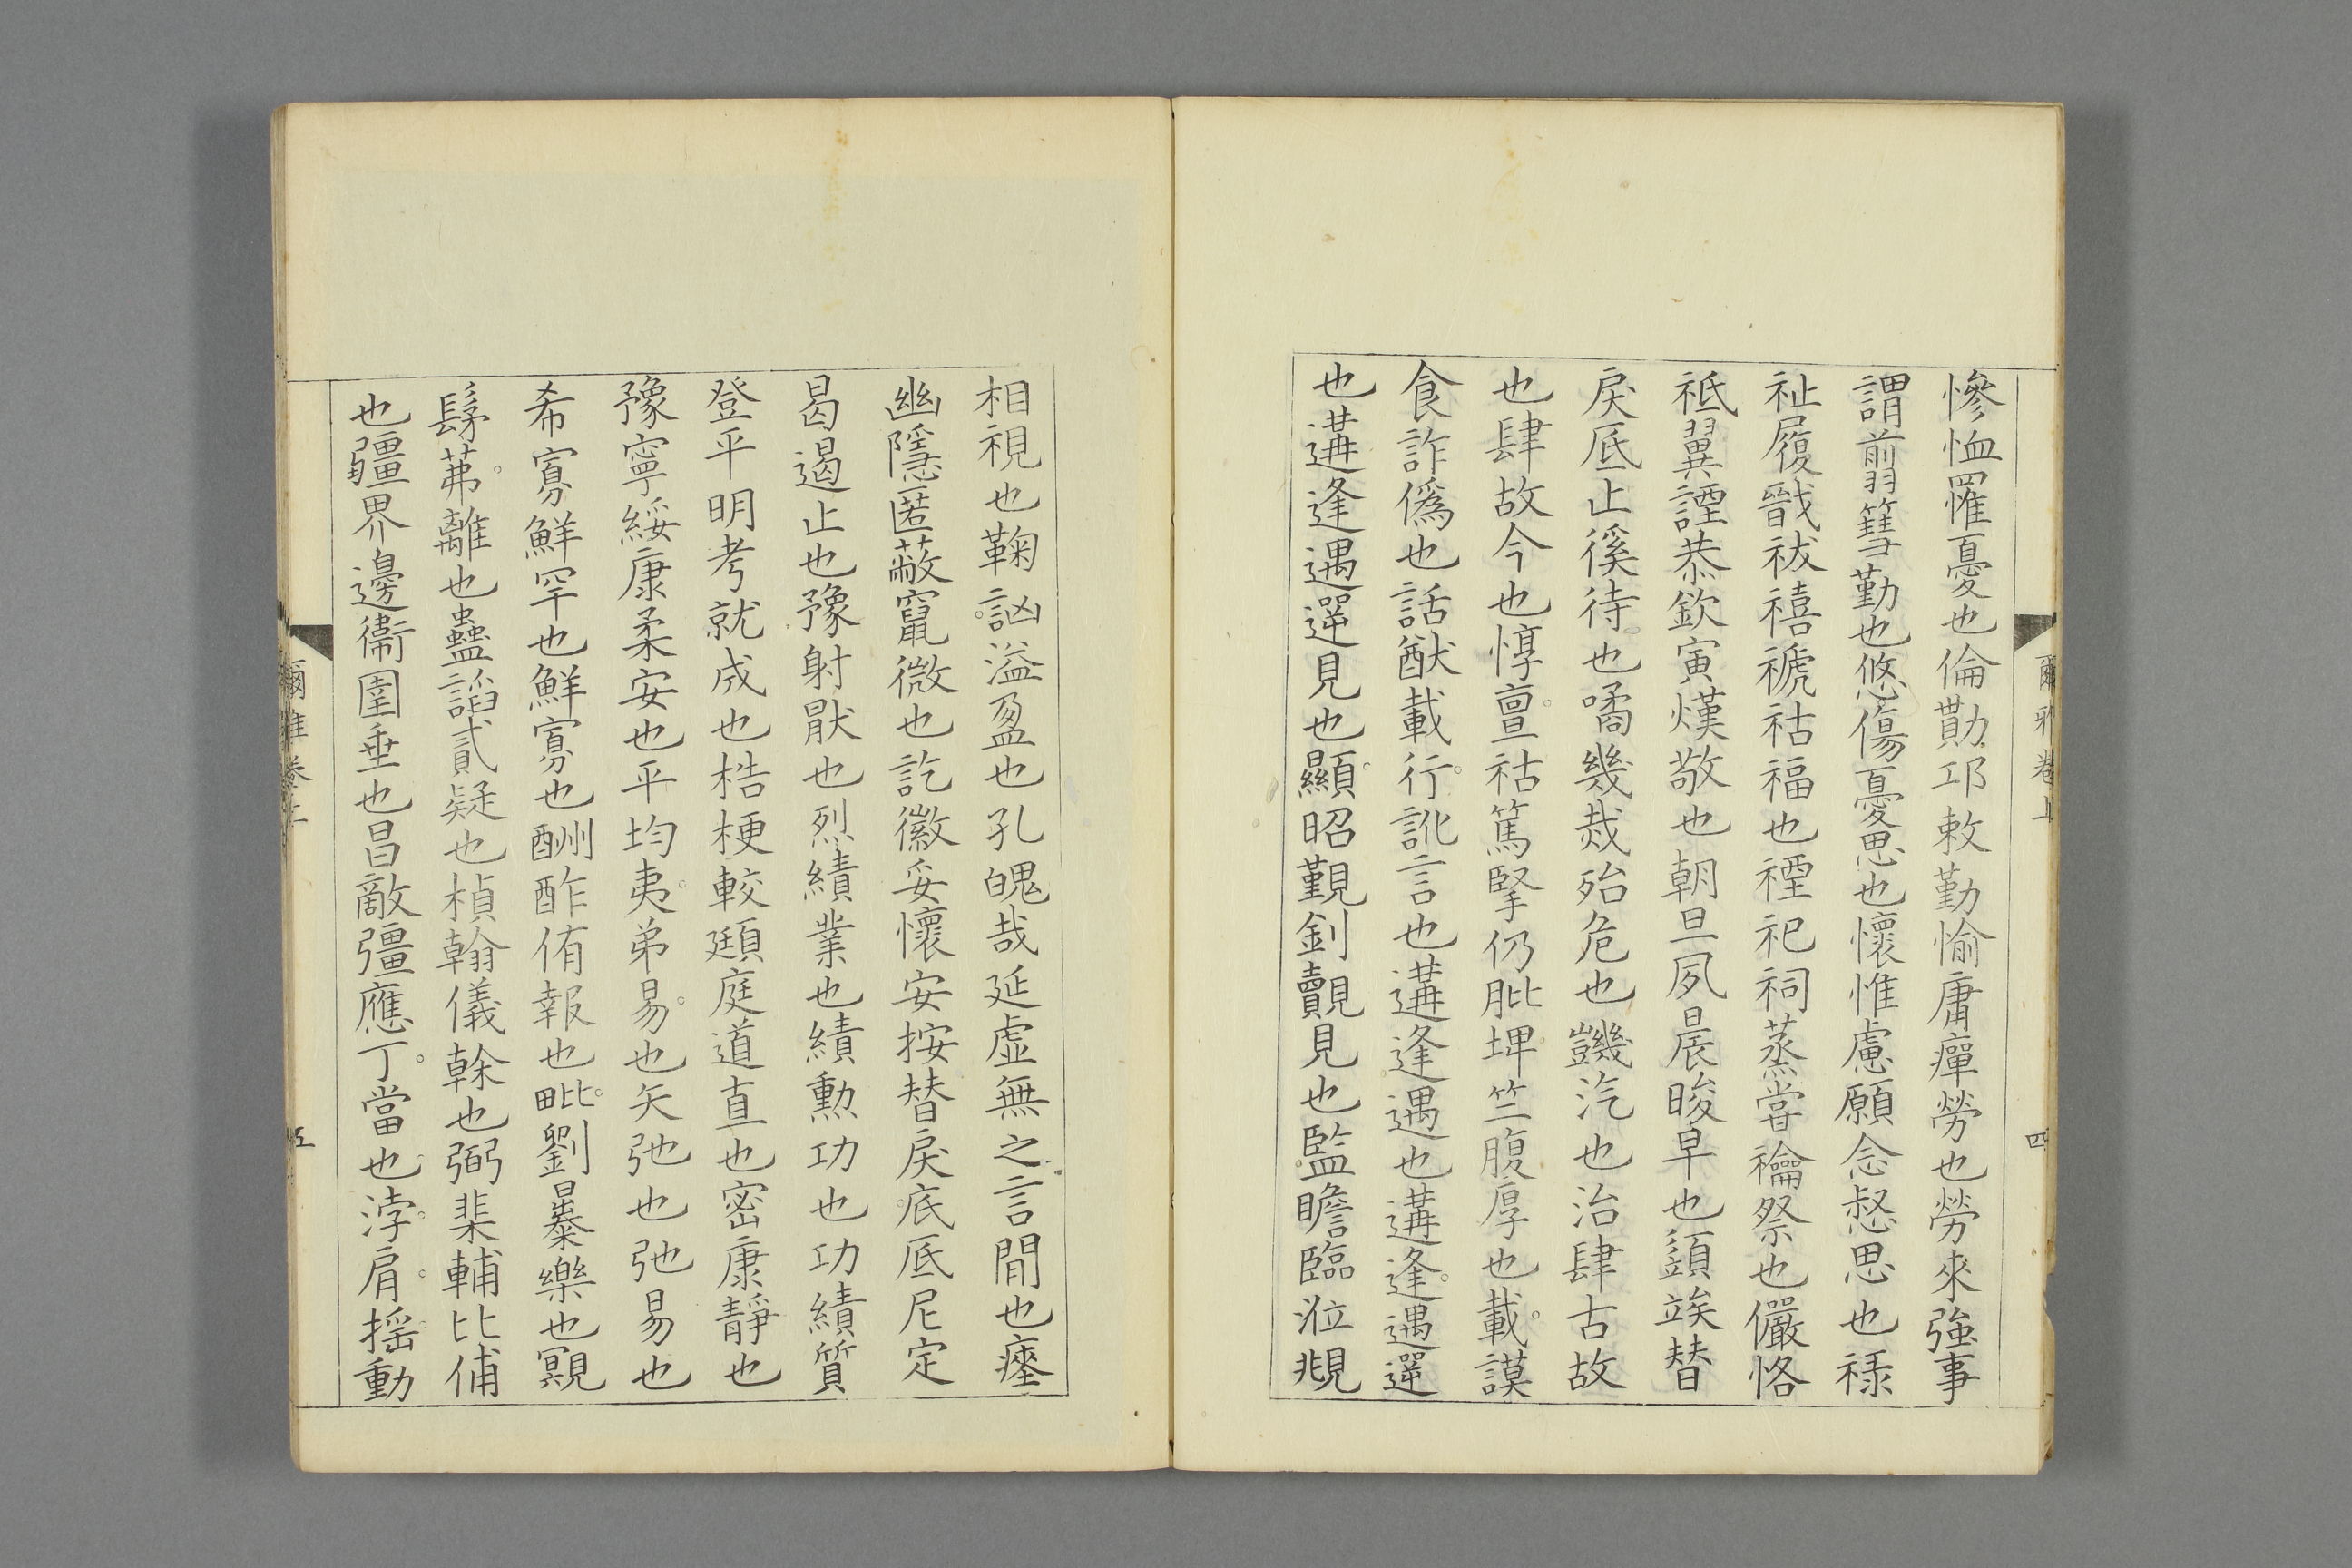 慘恤罹憂也倫勩邛敕勤愉庸癉勞也勞來強事
謂翦篲勤也悠傷憂思也懷惟慮願念惄思也祿
祉履戩祓禧禠祜福也禋祀祠蒸嘗禴祭也儼恪
祗翼諲恭欽寅熯敬也朝旦夙晨晙早也頾竢替
戾厎止徯待也噊幾烖殆危也譏汔也治肆古故
也肆故今也惇亶祜篤掔仍肶埤竺腹厚也載謨
食詐偽也話猷載行訛言也遘逢遇也遘逢遇遻
也遘逢遇遻見也顯昭覲釗覿見也監瞻臨涖頫
相視也鞠訩溢盈也孔魄哉延虛無之言間也瘞
幽隱匿蔽竄微也訖徽妥懷安按替戾底厎尼定
曷遏止也豫射厭也烈績業也績勳功也功績質
登平明考就成也梏梗較頲庭道直也密康靜也
豫寧綏康柔安也平均夷弟易也矢弛也弛易也
希寡鮮罕也鮮寡也酬酢侑報也毗劉暴樂也覭
髳茀離也蠱諂貳疑也楨翰儀榦也弼棐輔比俌
也疆界邊衞圉垂也昌敵彊應丁當也浡肩搖動
爾雅卷上
四
爾雅卷上
五